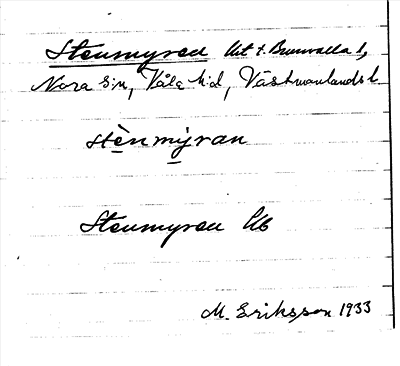 Stenmyren Ut t. Brunvalla 1,
Nora s:n, Våla h:d, Västmanlands l.
stènmýran
Stenmyren Ub
M. Eriksson 1933